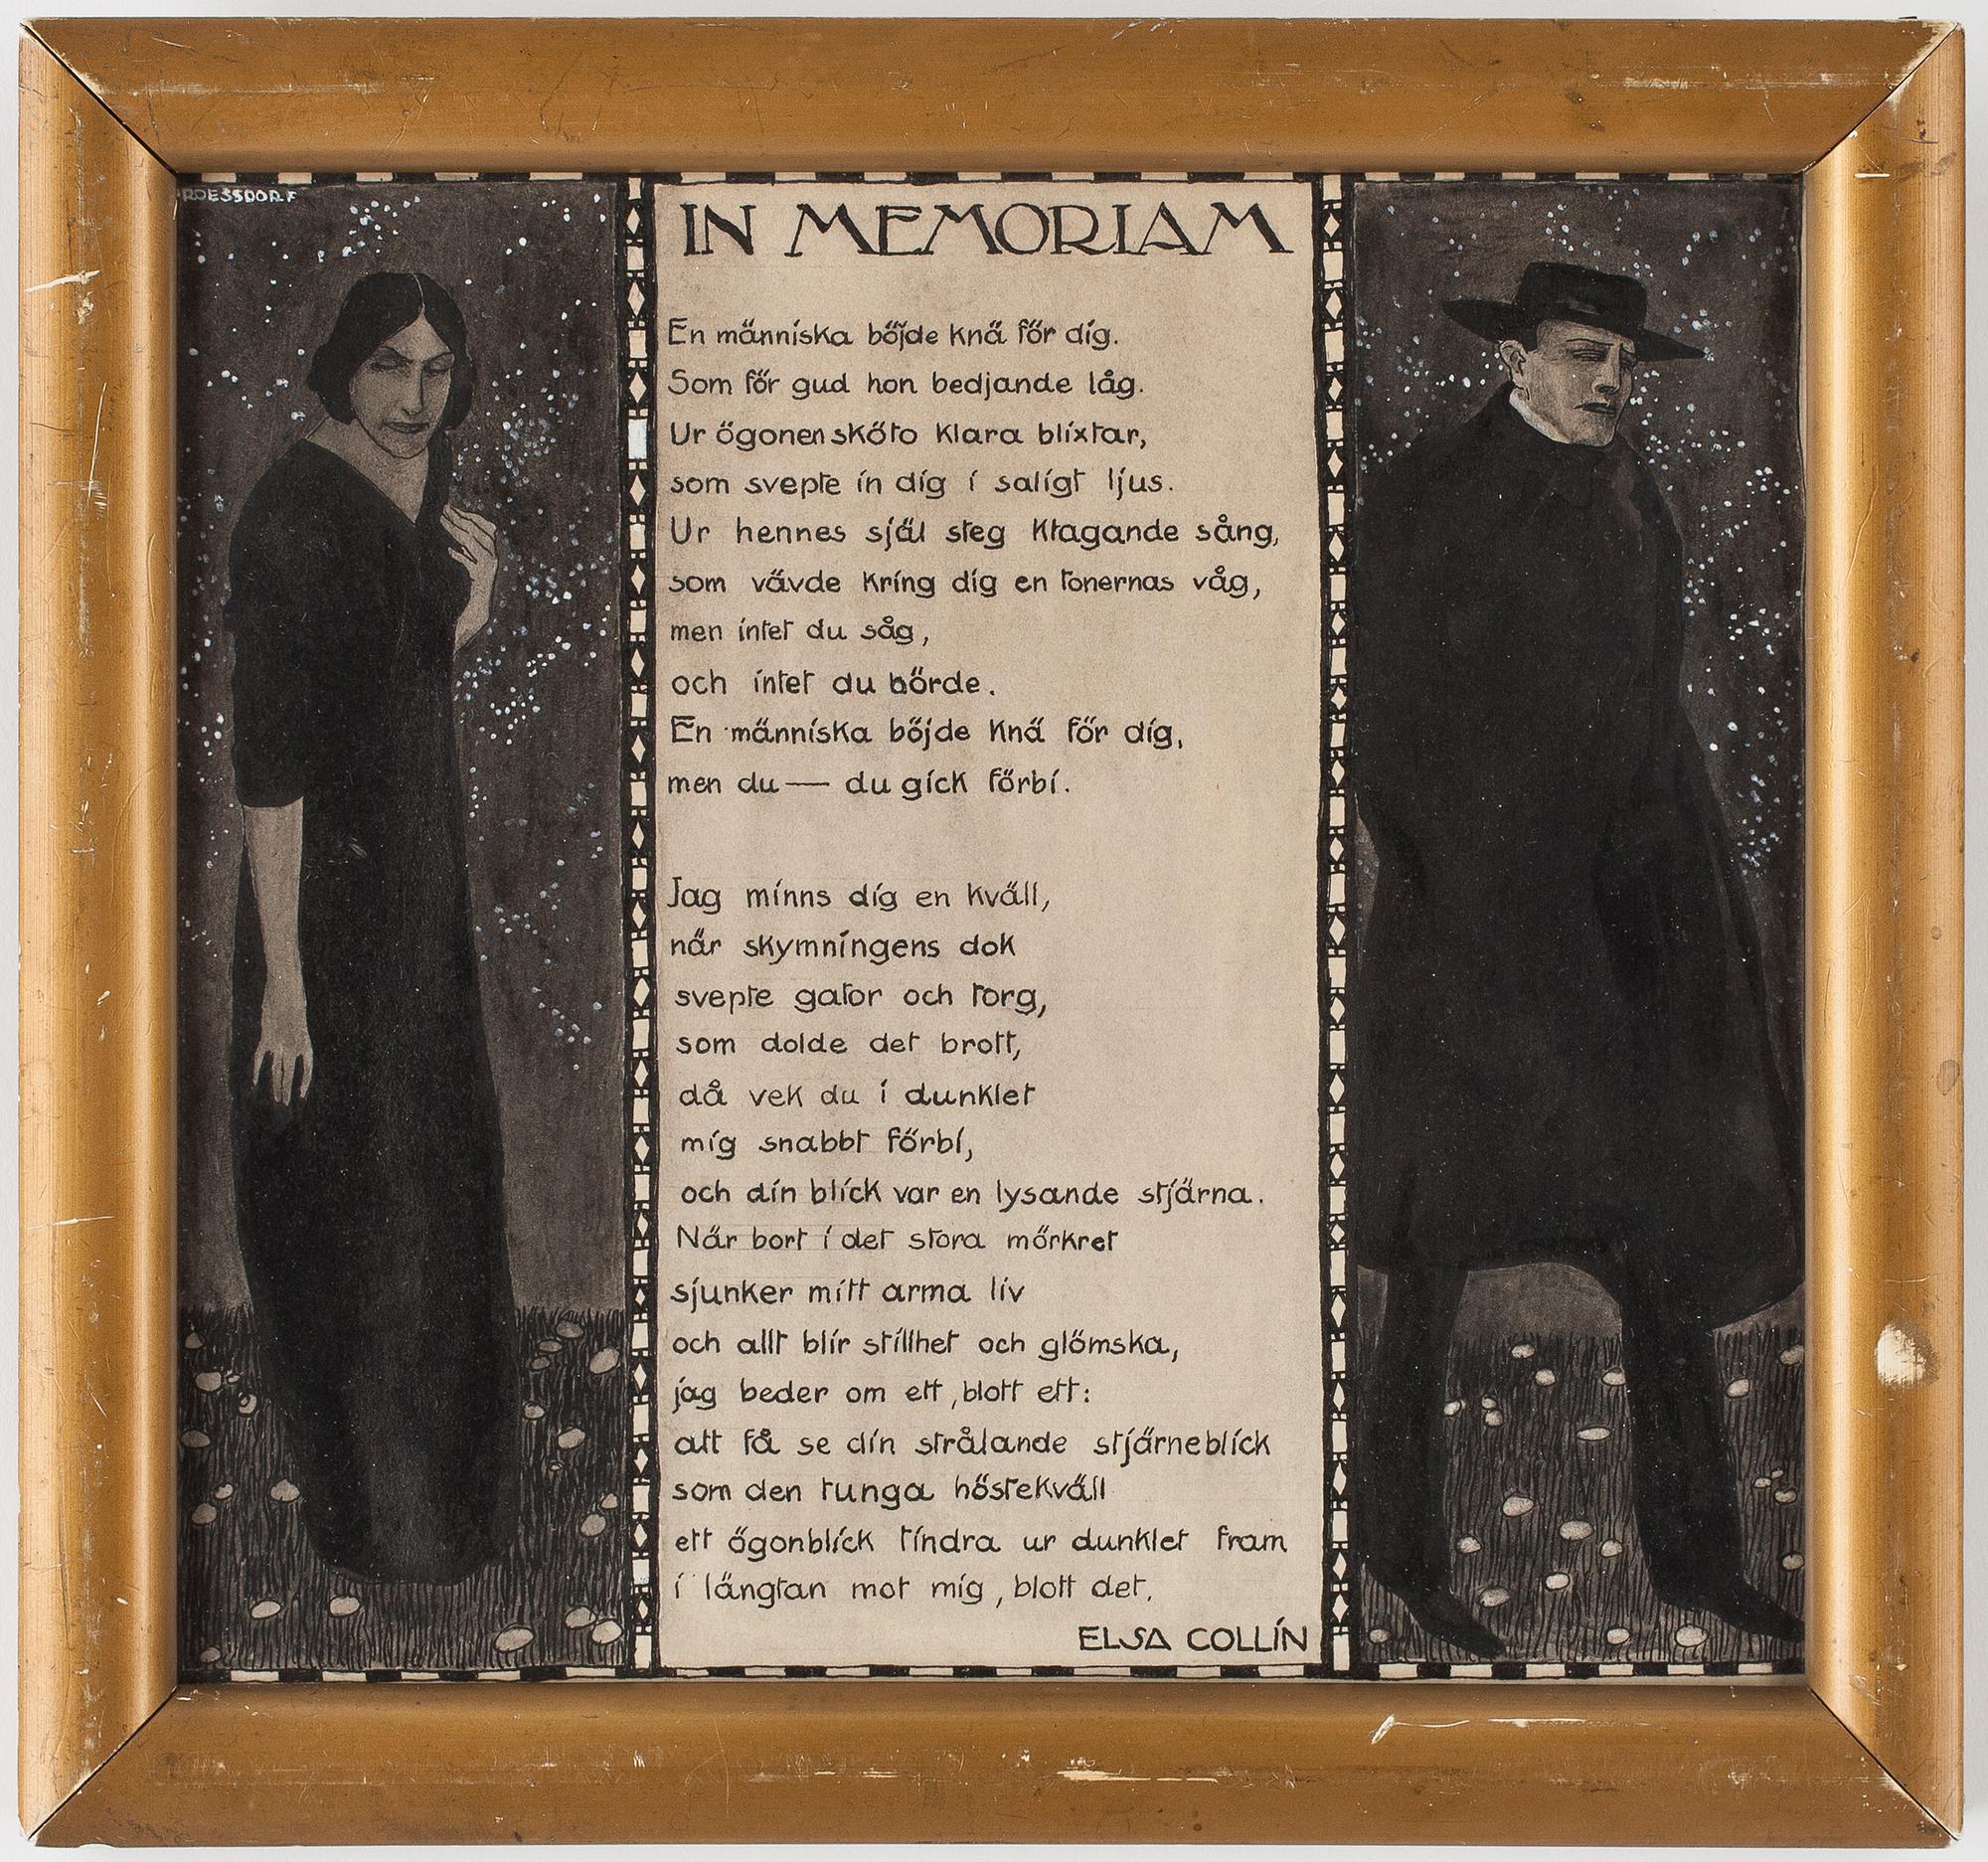 ROESSDORF
IN MEMORIAM
En människa böjde knä för dig.
Som för gud hon bedjande låg.
Ur ögonen sköto klara blixtar,
som svepte in dig i saligt ljus.
Ur hennes själ steg klagande sång,
som vävde kring dig en tonernas våg,
men intet du såg,
och intet du hörde.
En människa böjde knä för dig,
men du — du gick förbi.
Jag minns dig en kväll,
när skymningens dok
svepte gator och torg,
som dolde det brott,
då vek du i dunklet
mig snabbt förbi,
och din blick var en lysande stjärna.
När bort i det stora mörkret
sjunker mitt arma liv
och allt blir stillhet och glömska,
jag beder om ett, blott ett:
att få se din strålande stjärneblick
som den tunga höstekväll
ett ögonblick tindra ur dunklet fram
i längtan mot mig, blott det.
ELSA COLLIN